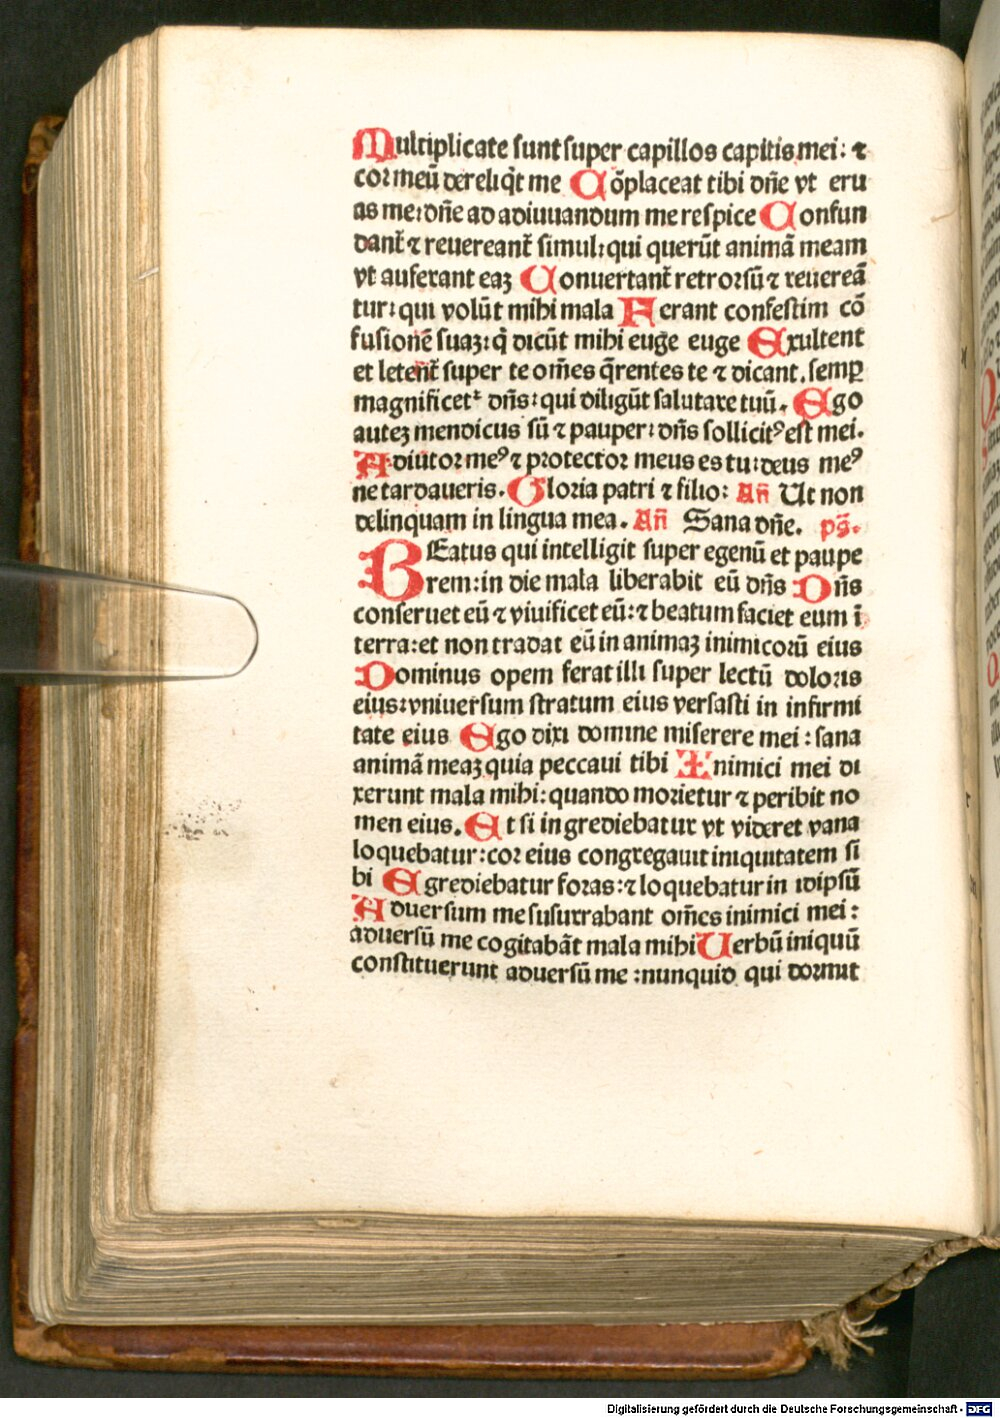 Multiplicate sunt super capillos capitis mei: ⁊
cor meū dereliq̄t me Cōplaceat tibi dn̄e vt eru
as me: dn̄e ad adiuuandum me respice Confun
dant᷑ ⁊ reuereant᷑ simul: qui querūt animā meam
vt auferant eaꝫ Conuertant᷑ retrorsū ⁊ reuereā
tur: qui volūt mihi mala Ferant confestim cō
fusionē suaꝫ: q̄ dicūt mihi euge euge Exultent
et letent᷑ super te om̄es q̄rentes te ⁊ dicant. semꝑ
magnificet᷑ dn̄s: qui diligūt salutare tuū. Ego
auteꝫ mendicus sū ⁊ pauper: dn̄s sollicitꝰ est mei.
Adiutor meꝰ ⁊ protector meus es tu: deus meꝰ
ne tardaueris. Gloria patri ⁊ filio: Añ Ut non
delinquam in lingua mea. Añ Sana dn̄e. ps̄.
BEatus qui intelligit super egenū et paupe
rem: in die mala liberabit eū dn̄s Dn̄s
conseruet eū ⁊ viuificet eū: ⁊ beatum faciet eum ī
terra: et non tradat eū in animaꝫ inimicoꝝū eius
Dominus opem ferat illi super lectū doloris
eius: vniuersum stratum eius versasti in infirmi
tate eius Ego dixi domine miserere mei: sana
animā meaꝫ quia peccaui tibi Inimici mei di
xerunt mala mihi: quando morietur ⁊ peribit no
men eius. Et si ingrediebatur vt videret vana
loquebatur: cor eius congregauit iniquitatem si
bi Egrediebatur foras: ⁊ loquebatur in idipsū
Aduersum me susurrabant om̄es inimici mei:
aduersū me cogitabāt mala mihi Uerbū iniquū
constituerunt aduersū me: nunquid qui dormit
Digitalisierung gefördert durch die Deutsche Forschungsgemeinschaft - DFG